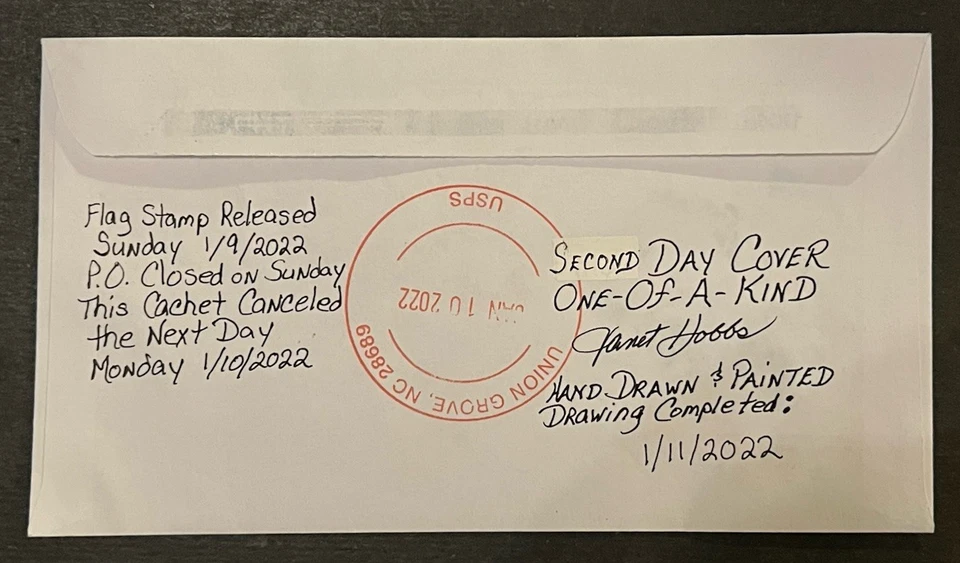 Flag Stamp Released
Sunday 1/9/2022
P.O. Closed on Sunday
This Cachet Canceled
the Next Day
Monday 1/10/2022
USPS
JAN 10 2022
UNION GROVE, NC 28689
SECOND DAY COVER
ONE-OF-A-KIND
Janet Hobbs
HAND DRAWN & PAINTED
Drawing Completed:
1/11/2022